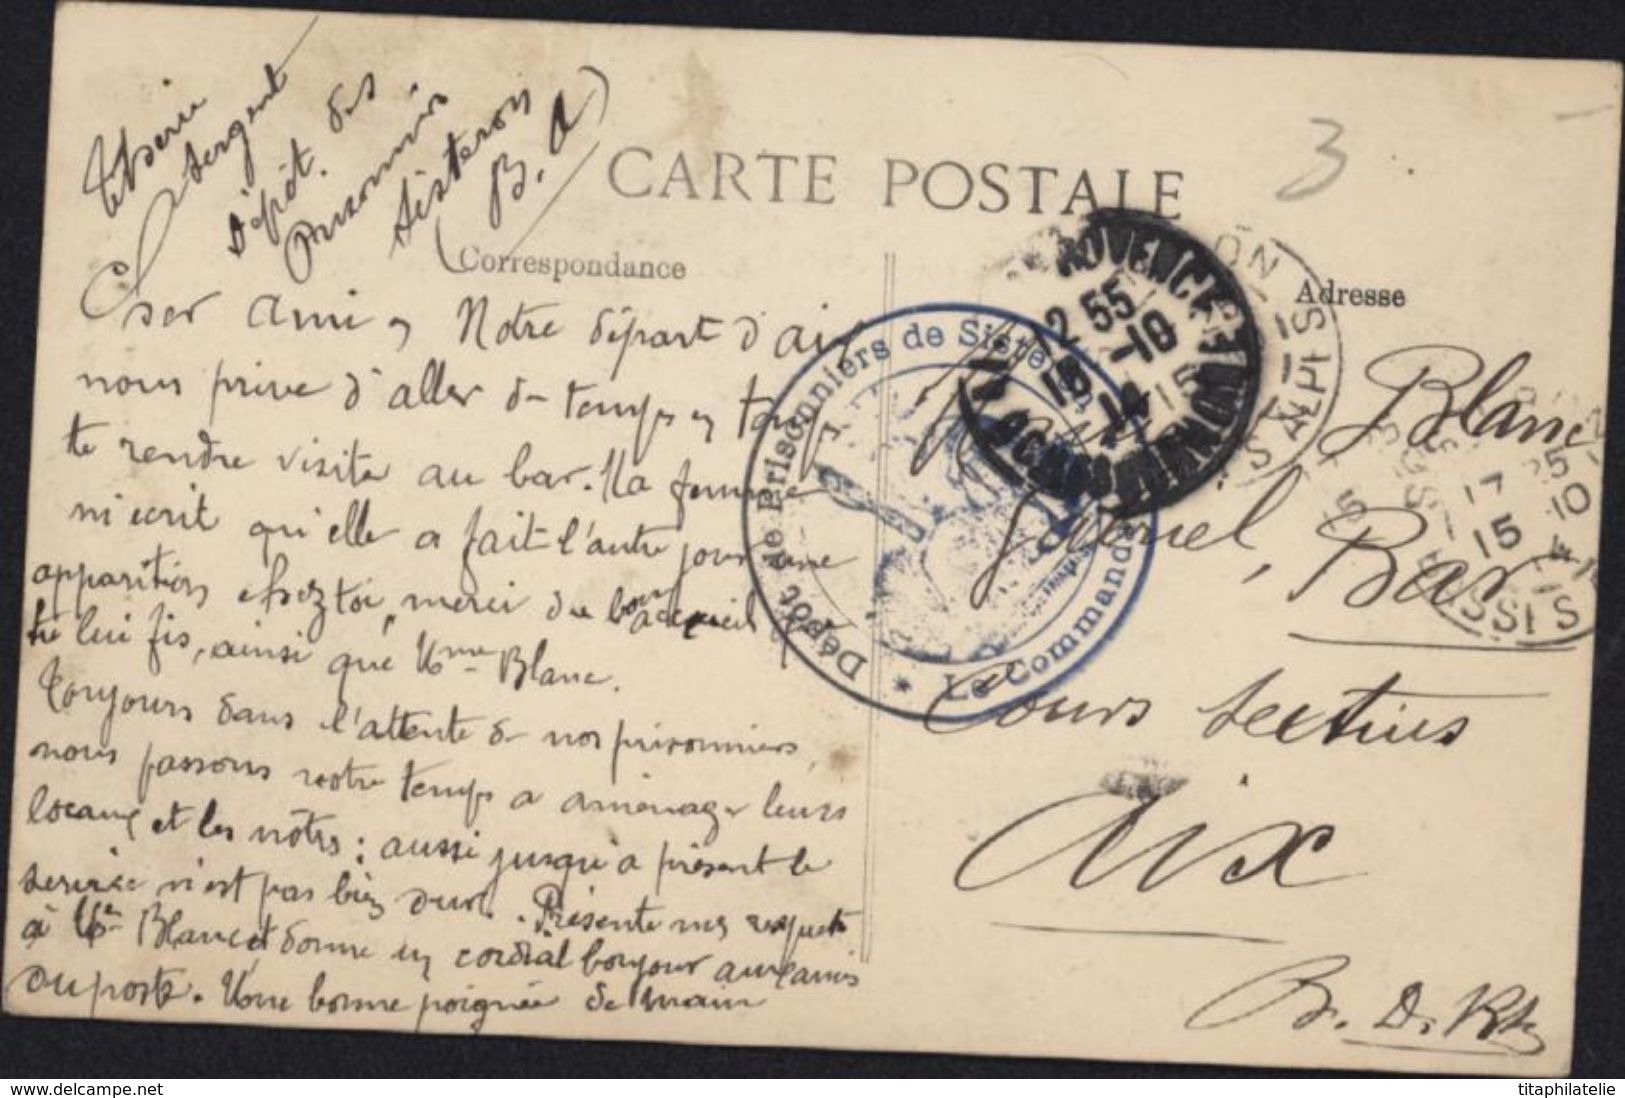 Sergent
Dépôt des
Prisonniers
Sisteron
B. A
CARTE POSTALE
3
Correspondance
Adresse
Cher ami, Notre départ d'aix
nous prive d'aller de temps en temps
te rendre visite au bar. Ma femme
m'ecrit qu'elle a fait l'autre jour une
apparition chez toi, merci du bon accueil
tu lui fis, ainsi que Mme Blanc.
Toujours dans l'attente de nos prisonniers,
nous passons notre temps a aménager leurs
locaux et les nôtres : aussi jusqu'a présent le
service n'est pas bien dur. Présente mes respects
à Mme Blanc et donne un cordial bonjour aux amis
du poste. Une bonne poignée de main
Dépôt de Prisonniers de Sisteron
Le Commandant
12 55
16 -10
14
17 25
15 10
Blanc
Gabriel, Bar
Cours Sextius
Aix
B. D. Rh
www.delcampe.net
titaphilatelie